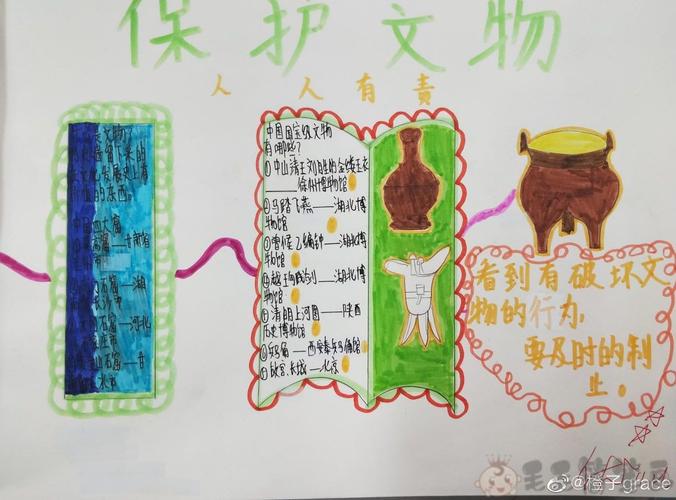 保护文物
人人有责
文物?
留下来的
文化发展史上有
的东西。
中国四大窟
——甘肃省
市
石窟——湖
长沙市
石窟——河北
庄市
山石窟——甘
水市
中国国宝级文物
有哪些?
①中山靖王刘胜的金缕玉衣
——徐州博物馆
②马踏飞燕——湖北博
物馆
③曾候乙编钟——湖北博
物馆
④越王勾践剑——湖北博
物馆
⑤清明上河图——陕西
历史博物馆
⑥兵马俑——西安秦兵马俑馆
⑦故宫、长城——北京
看到有破坏文
物的行为,
要及时的制
止。
@橙子grace